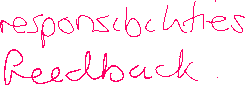 responsibilities
Feedback.